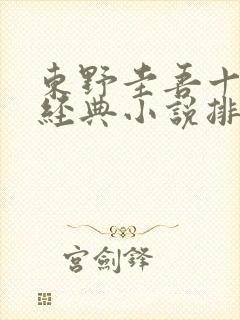 東野圭吾十
經典小說排
宮劍鋒